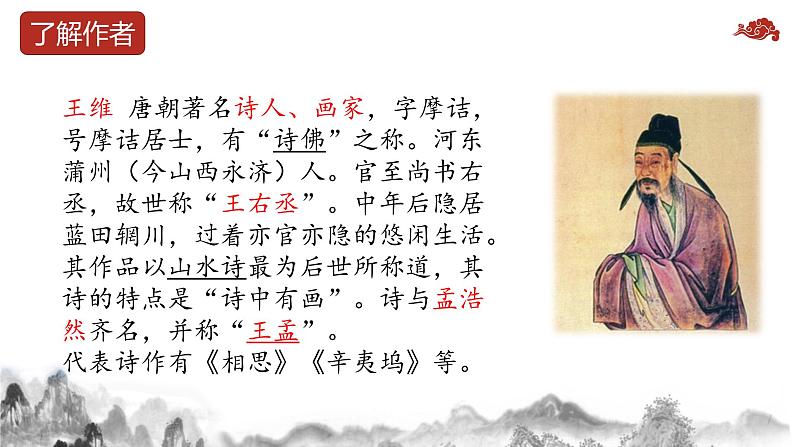 了解作者
王维 唐朝著名诗人、画家，字摩诘，
号摩诘居士，有“诗佛”之称。河东
蒲州（今山西永济）人。官至尚书右
丞，故世称“王右丞”。中年后隐居
蓝田辋川，过着亦官亦隐的悠闲生活。
其作品以山水诗最为后世所称道，其
诗的特点是“诗中有画”。诗与孟浩
然齐名，并称“王孟”。
代表诗作有《相思》《辛夷坞》等。